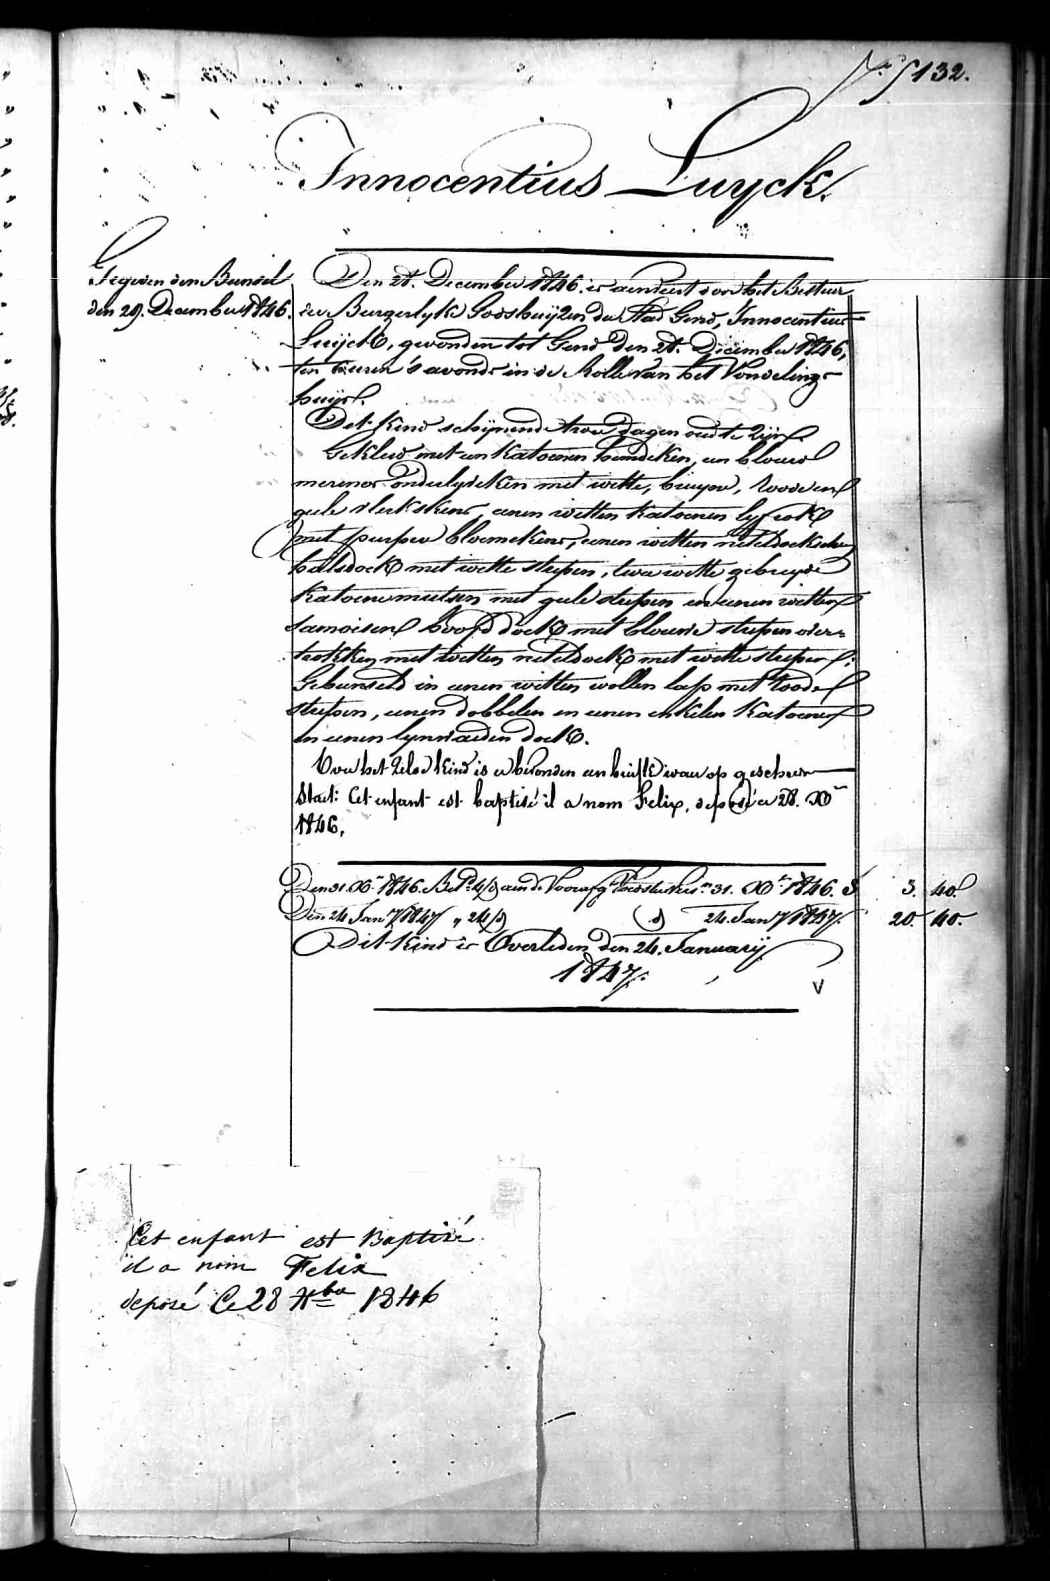 N.º 132.
Innocentius Luyck.
Gegeven den Bunsel
den 29. December 1846.
Den 28. December 1846. is aenveert door het Bestuur
der Burgerlyke Godshuijzen der Stad Gend, Innocentius
Luijck, gevonden tot Gend den 28. December 1846,
ten uren 's avonds in de Rolle van het Vondelings-
huijs.
Dit kind schijnende twee dagen oud te zijn.
Gekleed met een katoenen hemdeken, een blauw
merinos onderlydeken met witte, bruyne, roode en
gele vlekskens, eenen witten katoenen lyfrok
met purper bloemekens, eenen witten neteldoekschen
halsdoek met witte strepen, twee witte gebreyde
katoene mutsen met gele strepen en eenen witten
samoisen hoofddoek met blauwe strepen over-
trokken met witten neteldoek met witte strepen.
Gebunseld in eenen witten wollen lap met roode
strepen, eenen dobbelen en eenen enkelen katoenen
en eenen lynwaeden doek.
Voor het zelve kind is er bevonden een briefke waer op geschreven
staet: Cet enfant est baptisé il a nom Felix, deposé ce 28. Xbre
1846.
Den 31. Xbre 1846. Bet. 4/ aen de Voorz. 31. Xbre 1846. 3. 40.
Den 24 Jany 1847 " 24/ 24. Jany 1847. 20. 40.
Dit kind is Overleden den 24. January
1847.
Cet enfant est Baptisé
il a nom Felix
deposé Ce 28 Xbre 1846